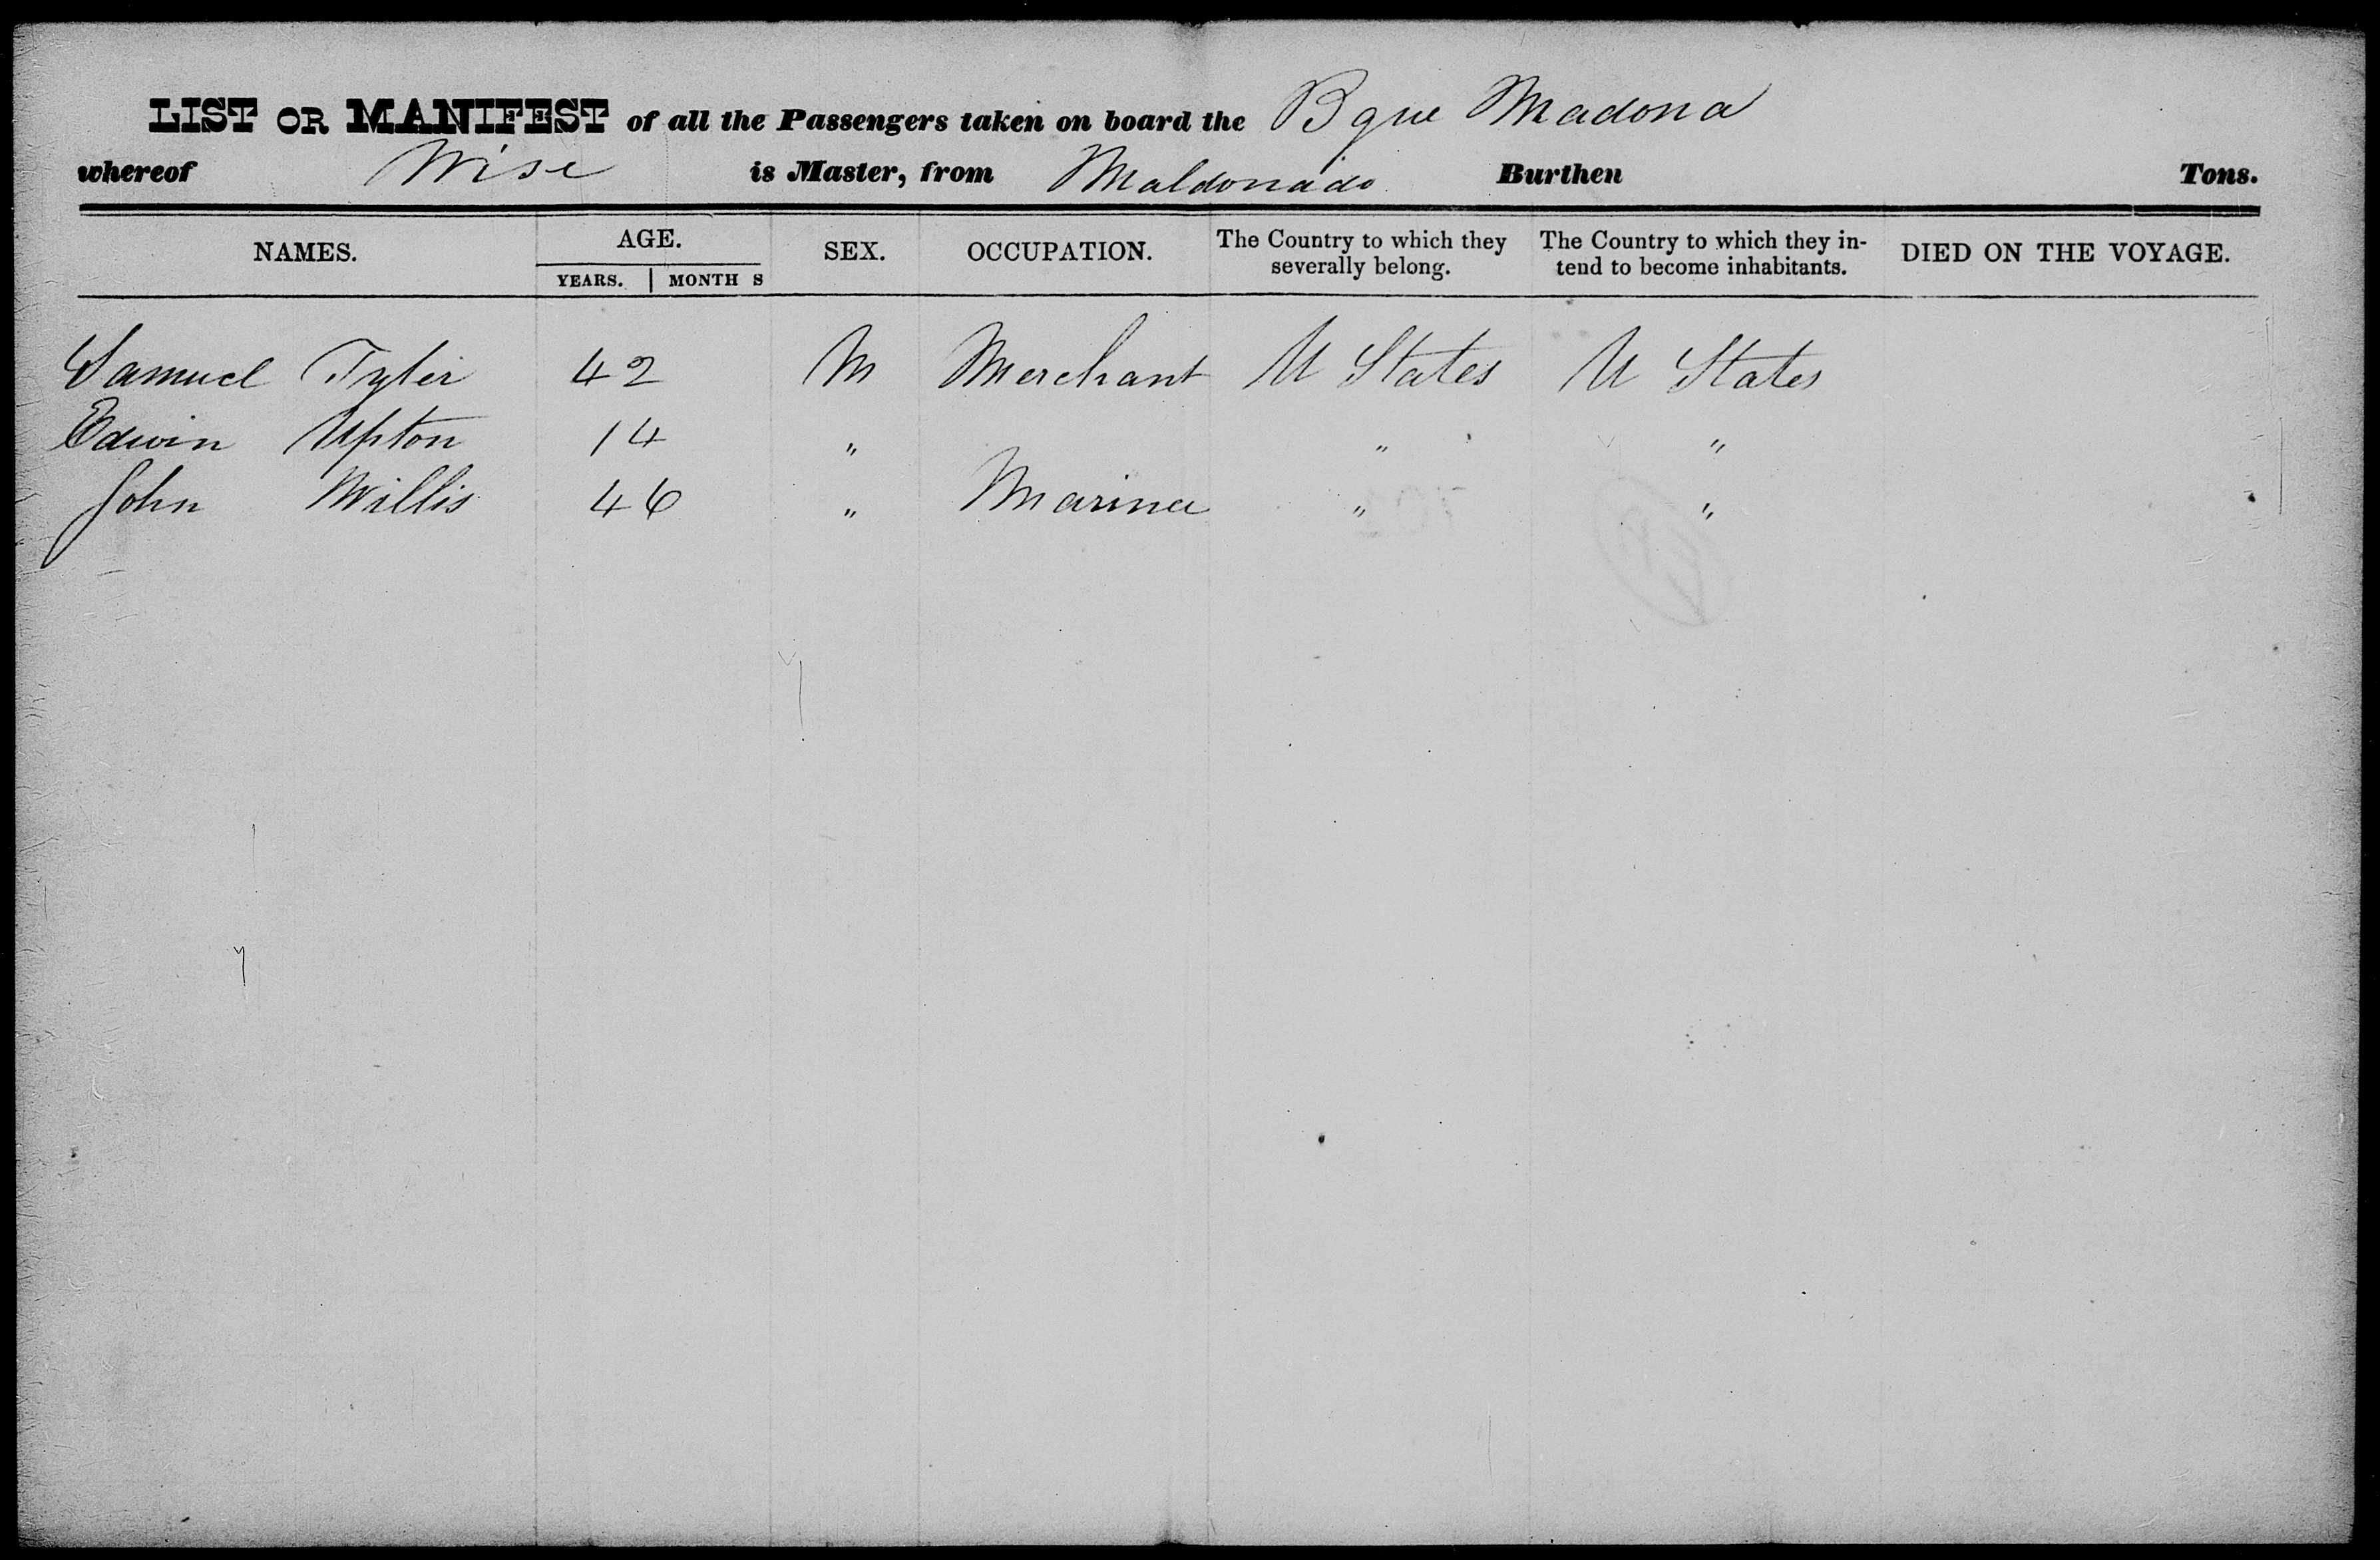 LIST OR MANIFEST of all the Passengers taken on board the Bque Madona
whereof Wise is Master, from Maldonado Burthen Tons.
NAMES. AGE. YEARS. MONTH S SEX. OCCUPATION. The Country to which they severally belong. The Country to which they in-tend to become inhabitants. DIED ON THE VOYAGE.
Samuel Tyler 42 M Merchant U States U States
Edwin Upton 14 " " "
John Willis 46 " Mariner " "